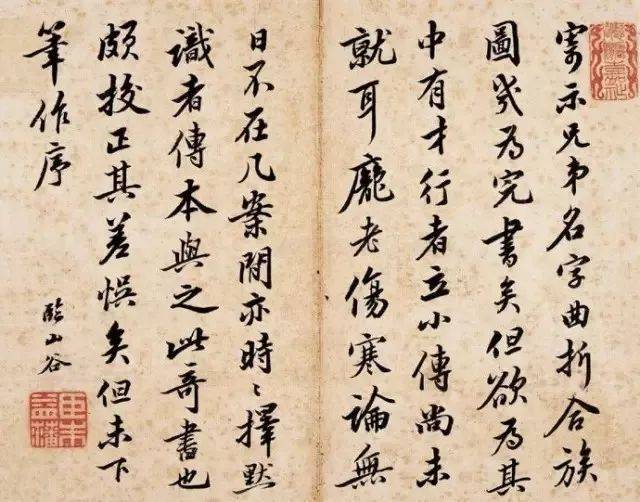 寄示兄弟名字曲折合族
圖幾為完書矣但欲為其
中有才行者立小傳尚未
就耳龐老傷寒論無
日不在几案間亦時〻擇默
識者傳本與之此奇書也
頗挍正其差悮矣但未下
筆作序
臨山谷